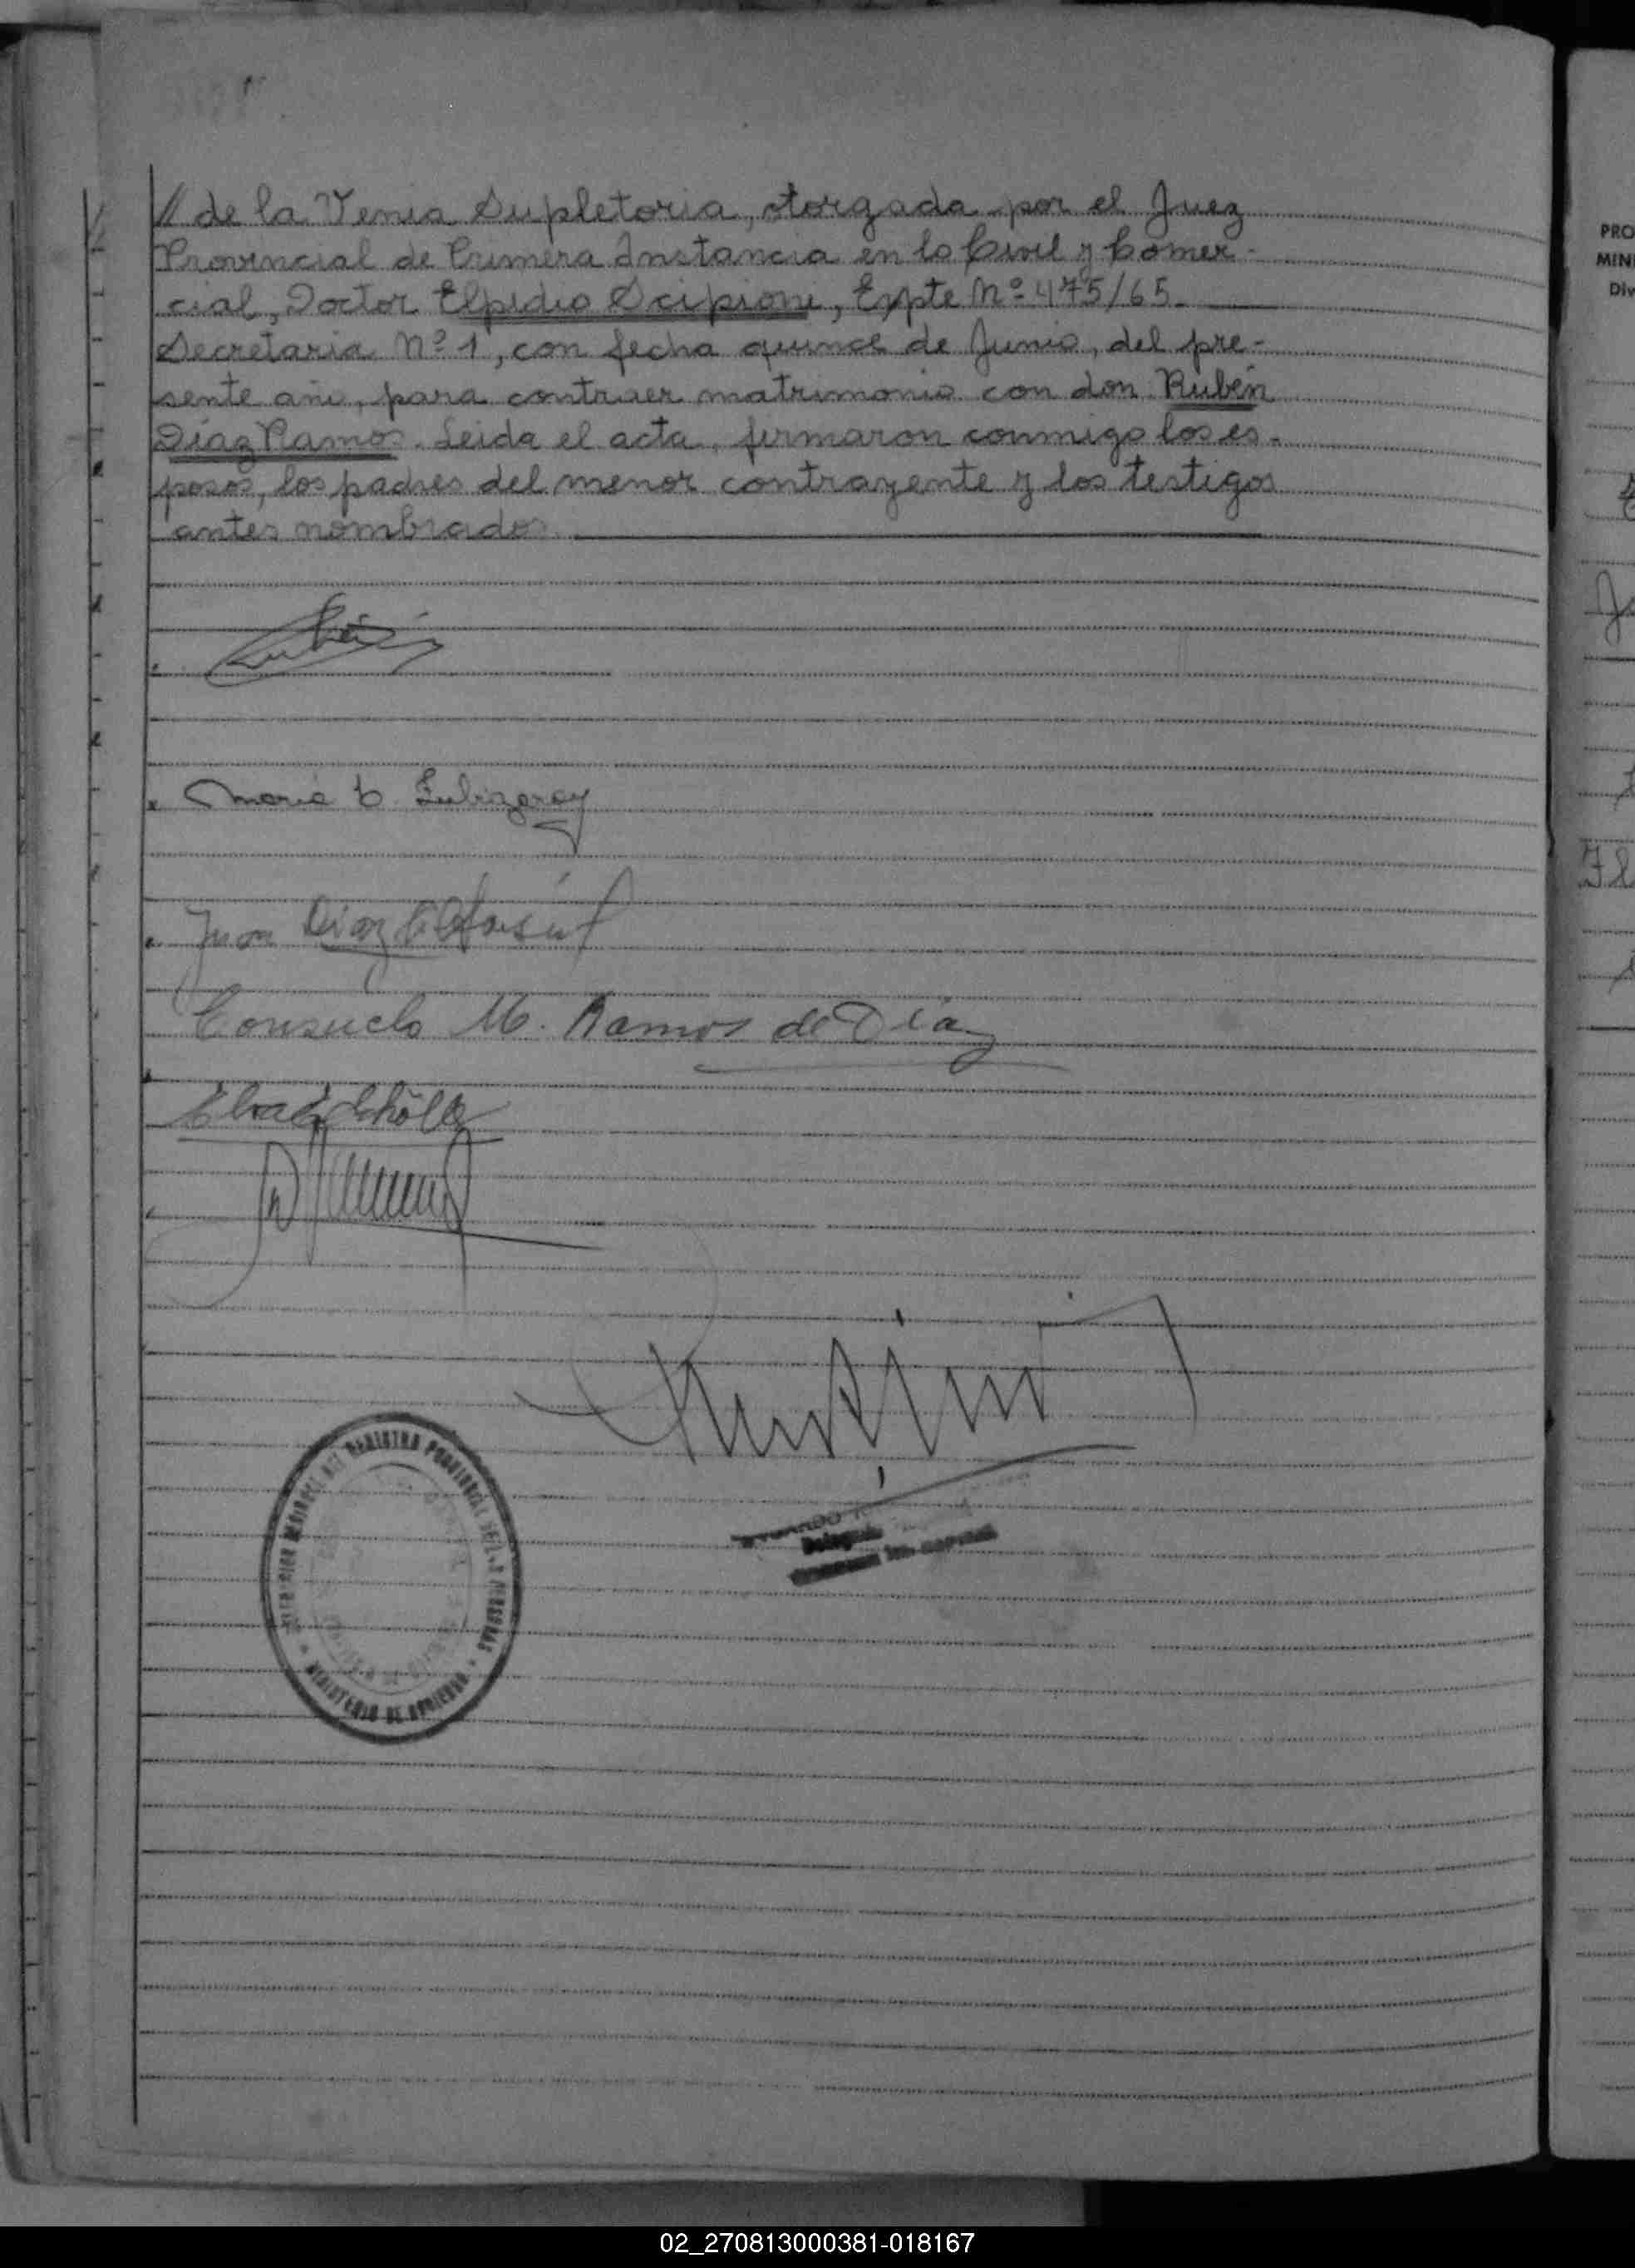 // de la Venia Supletoria, otorgada por el Juez
Provincial de Primera Instancia en lo Civil y Comer-
cial, Doctor Elpidio Scipioni, Expte Nº 475/65.
Secretaria Nº 1, con fecha quince de Junio, del pre-
sente año, para contraer matrimonio con don Rubén
Díaz Ramos. Leida el acta, firmaron conmigo los es-
posos, los padres del menor contrayente y los testigos
antes nombrados.
Maria
Juan Diaz
Consuelo M. Ramos de Díaz
REGISTRO PROVINCIAL DE LAS PERSONAS
MINISTERIO DE GOBIERNO
PRO
MIN
Div
02_270813000381-018167